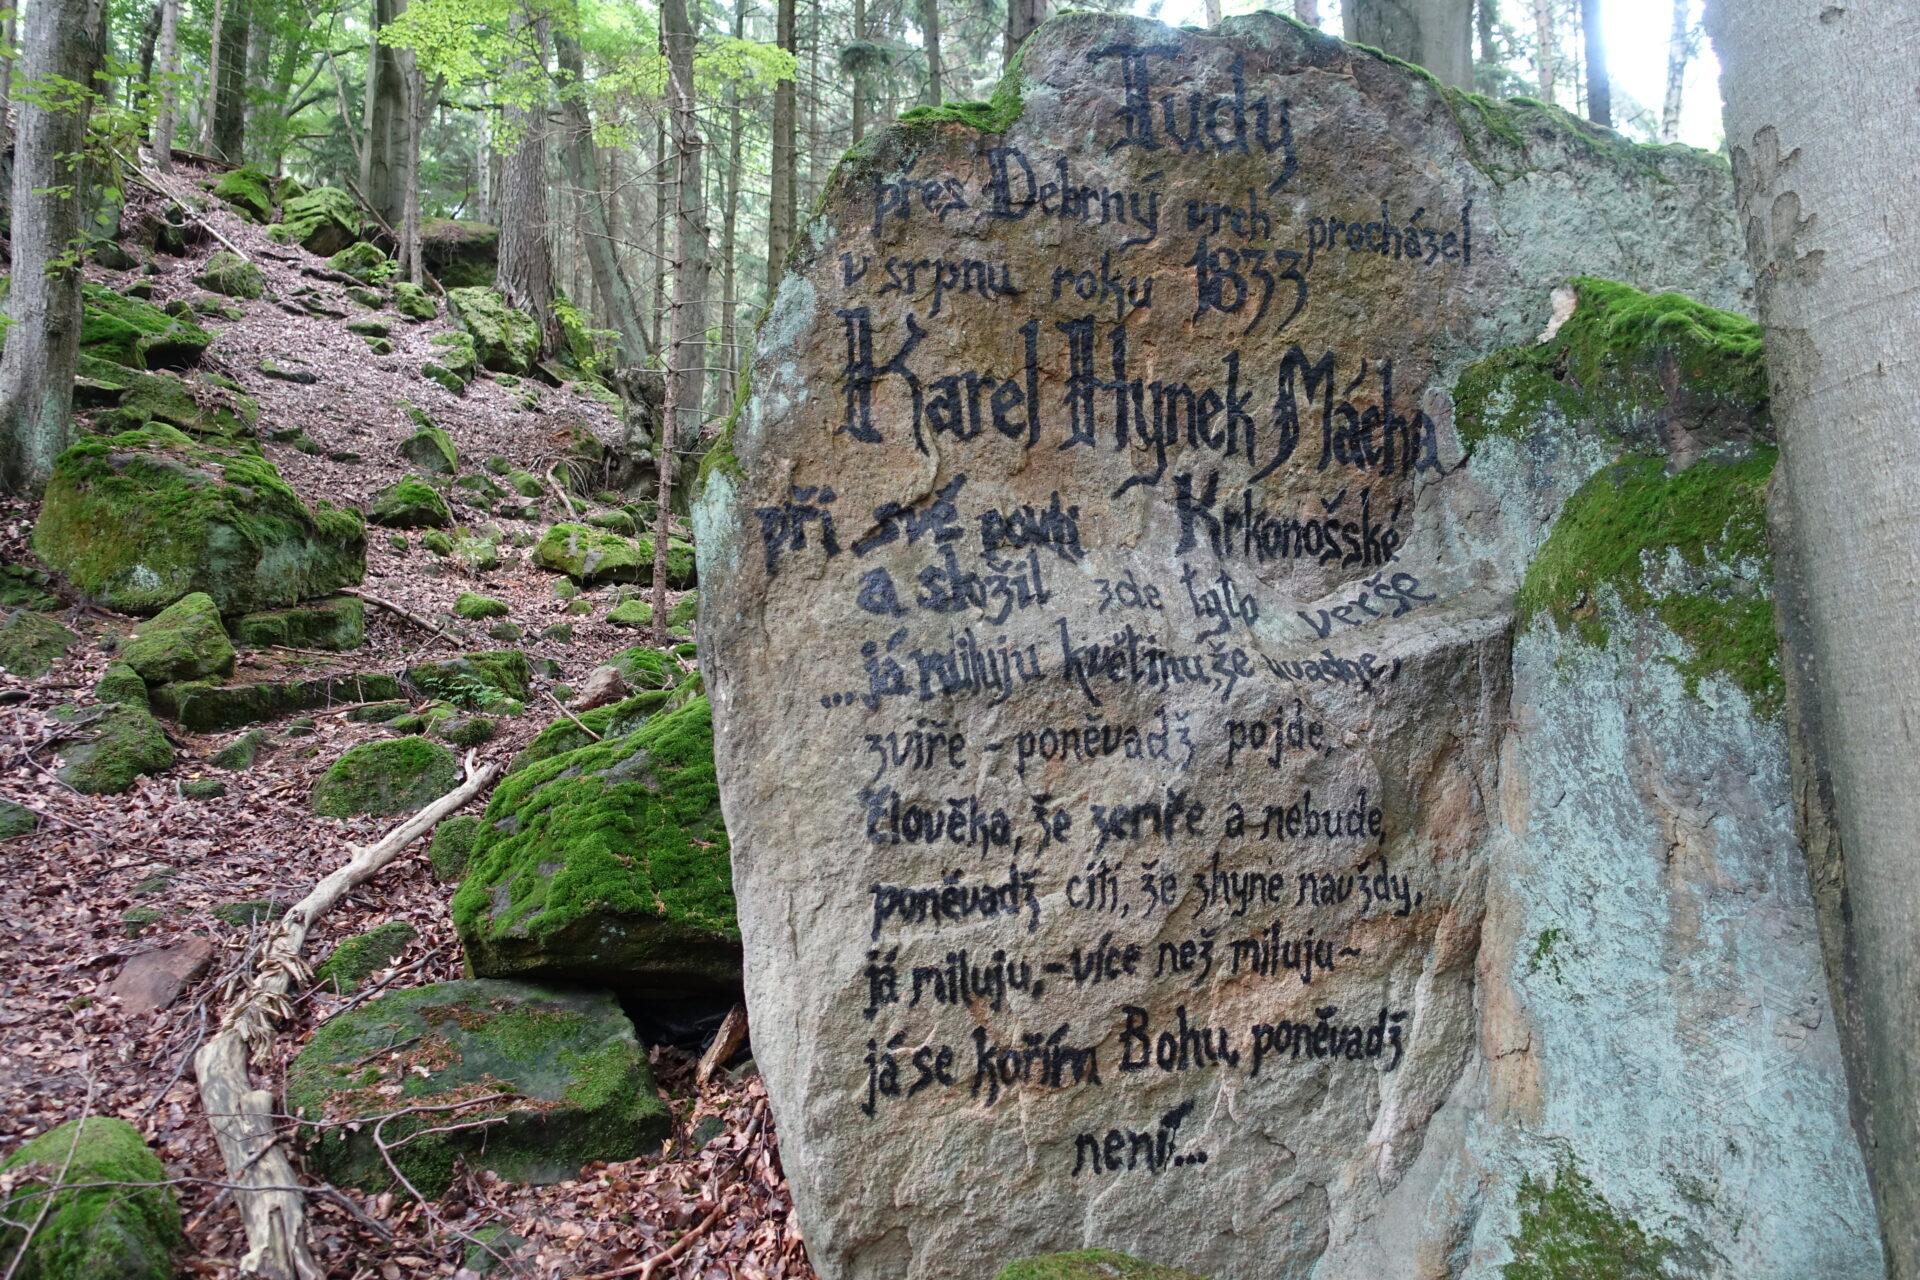 Tudy
přes Debrný vrch procházel
v srpnu roku 1833
Karel Hynek Mácha
při své pouti Krkonošské
a složil zde tyto verše
...já miluju květinu, že uvadne,
zvíře - poněvadž pojde,
člověka, že zemře a nebude,
poněvadž cítí, že zhyne navždy,
já miluju, - více než miluju -
já se kořím Bohu, poněvadž
není...